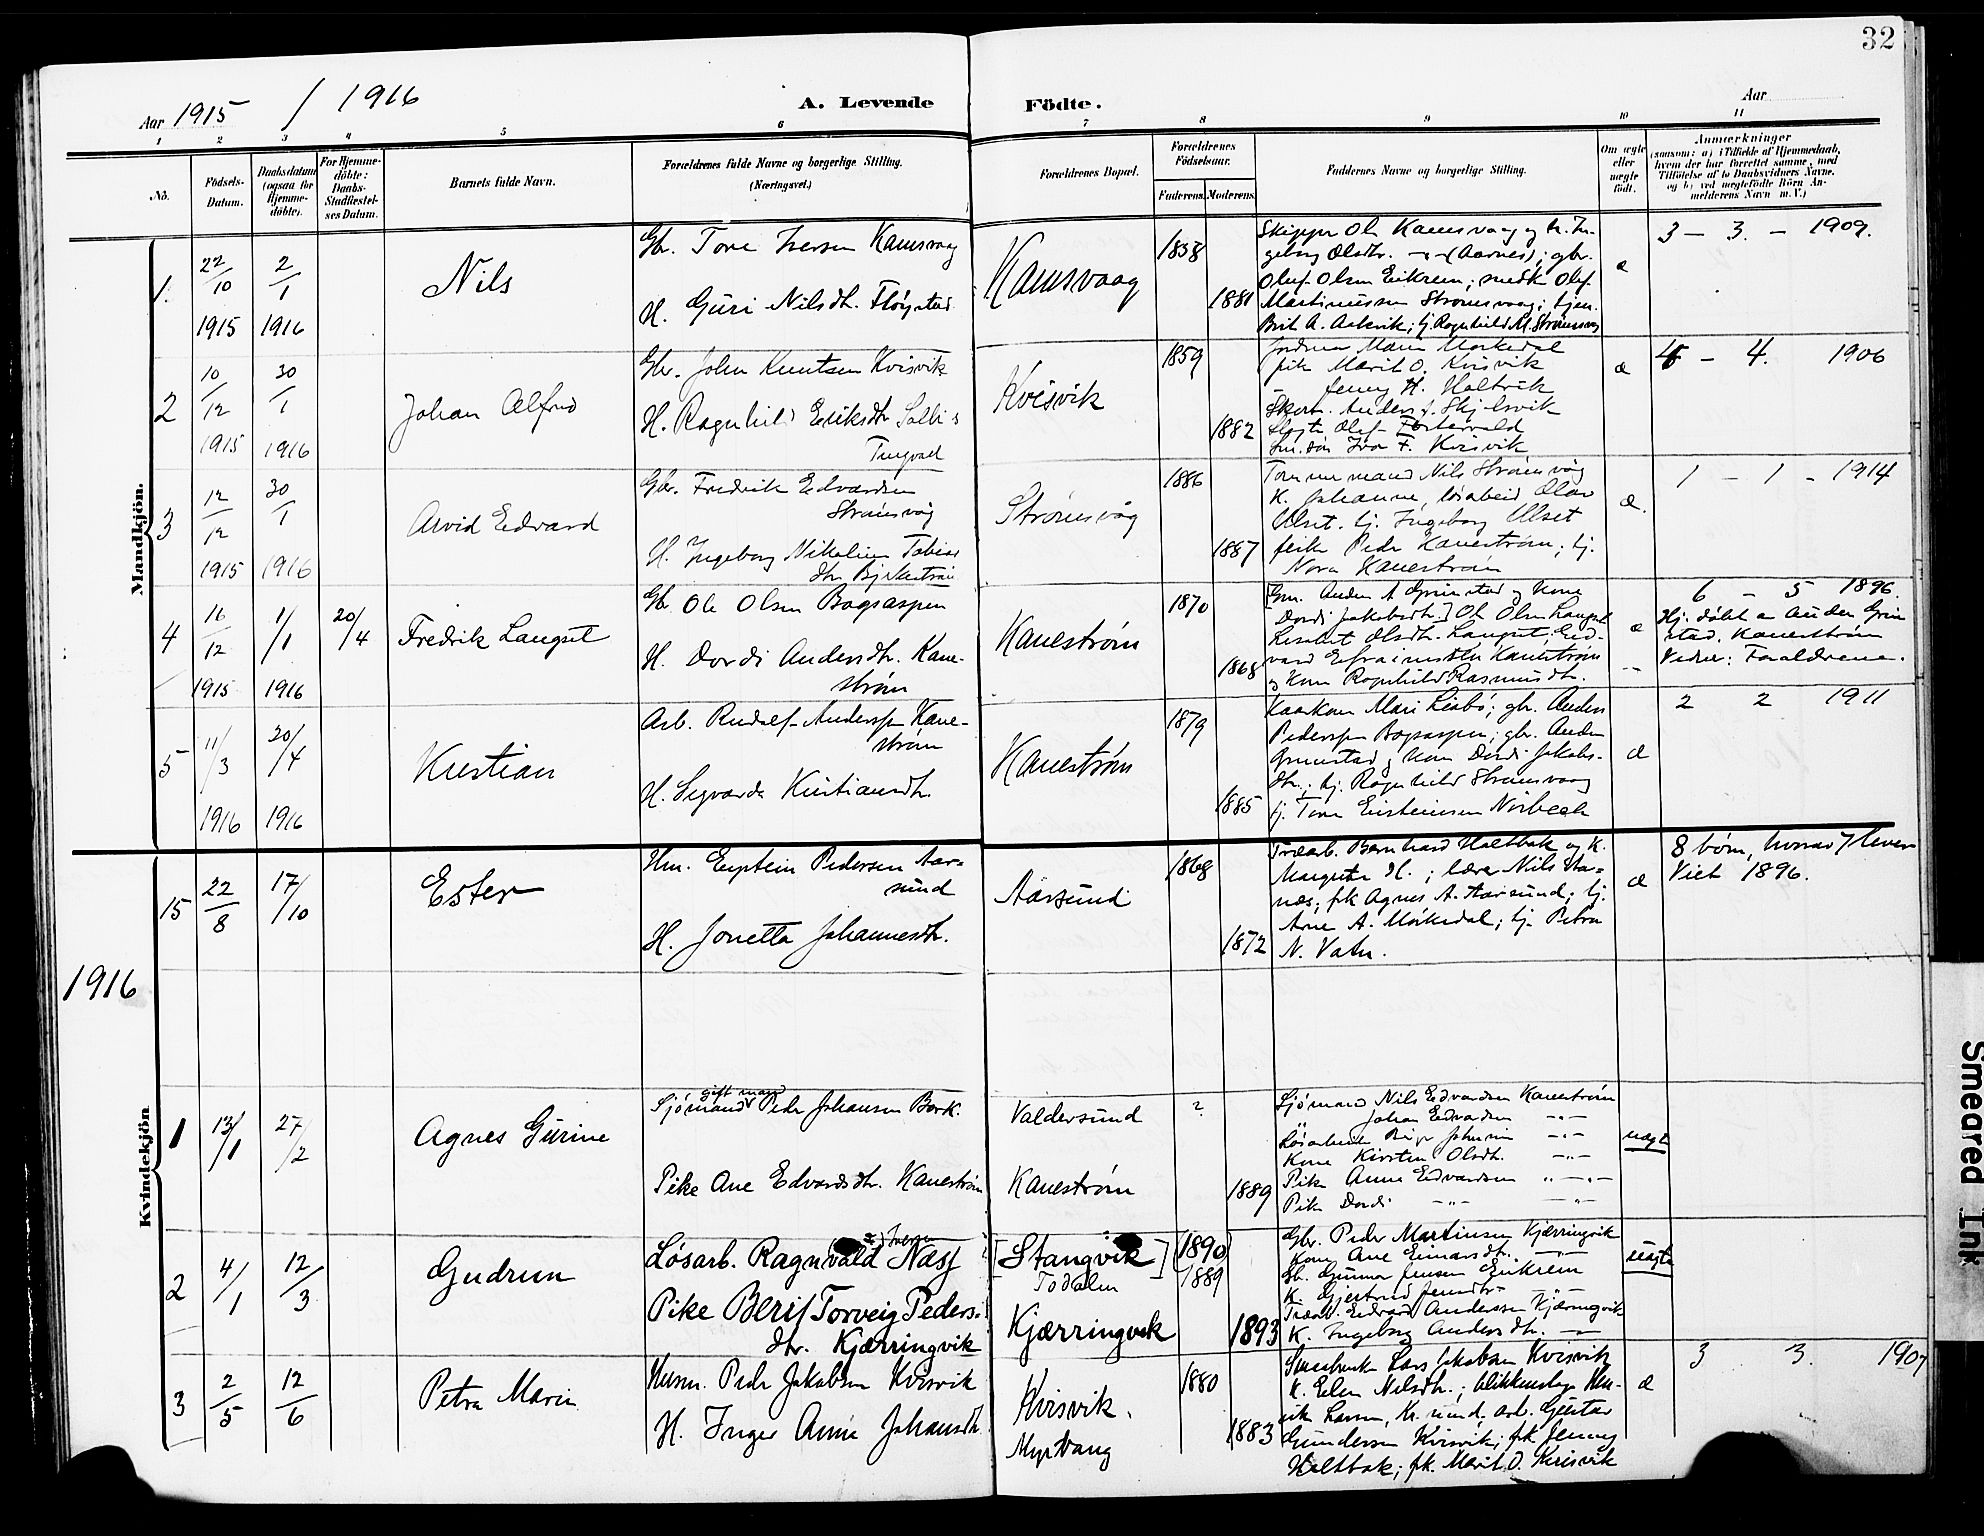 32
Aar 1915 / 1916
A. Levende Födte.
Aar
1 2 3 4 5 6 7 8 9 10 11
No.
Födsels-Datum.
Daabsdatum (ogsaa for Hjemme-döbte).
For Hjemme-döbte: Daabs-Stadfæstel-ses Datum.
Barnets fulde Navn.
Forældrenes fulde Navne og borgerlige Stilling.
(Næringsvei.)
Forældrenes Bopæl.
Forældrenes Födselsaar.
Faderens. Moderens.
Faddernes Navne og borgerlige Stilling.
Om ægte eller uægte født.
Anmærkninger
(saasom: a) i Tilfælde af Hjemmedaab, hvem der har forrettet samme, med Tilföielse af to Daabsvidners Navne. og b) ved uægtefödte Börn An-melderens Navn m. V.)
Mandkjön.
1. 22/10 1915 2/1 1916
Nils
Gbr. Tore Iversen Kamsvaag
H. Guri Nilsdtr. Fløystad
Kamsvaag
1858
1881
Skipper Ole Kamsvaag og h. In-
geborg Olsdtr. - (Aarnes); gbr.
Oluf Olsen Eikrem; Oluf
Martinussen Strømsvaag; tjen.
Brit A. Aakvik; tj. Ragnhild M. Strømsvaag
æ
3 - 3. - 1909.
2 10/12 1915 30/1 1916
Johan Alfred
Gbr. John Knutsen Kvisvik
H. Ragnhild Eriksdtr
Tingvoll
Kvisvik
1859
1882
Jordmor Marie Mørkedal
pik Marit O. Kvisvik
- Jenny H. Holtvik
Anders J. Skjelsvik
Oluf
Ivar F. Kvisvik
æ
4 - 4. 1906
3 12/12 1915 30/1 1916
Arvid Edvard
Gbr. Fredrik Edvardsen
Strømsvåg
H. Ingeborg Nikoline Tobias
dtr Bjerkestrøm
Strømsvåg
1886
1887
Tømmermand Nils Strømsvåg
K. Johanne, løsarbeid Olav
Ulset. tj. Ingeborg Ulset
Peder Kanestrøm; tj.
Nora Kanestrøm
æ.
1 - 1 - 1914
4 16/12 1915 1/1 1916 20/4
Fredrik Langset
Gb. Ole Olsen Bogsaspen
H. Dordi Andersdtr. Kane-
strøm
Kanestrøm
1870
1868
[Gm. Anders A Grimstad og Kone
Dordi Jakobsdtr.] Ole Olsen Langset
Lisabet Olsdtr. Langset; Ed-
vard Efraimsen Kanestrøm
og Kone Ragnhild Rasmusdtr.
æ
6 - 5 1896.
Hj. døbt a Anders Grim
stad, Kanestrøm
Vidner: Forældrene.
5 11/3 1916 20/4 1916
Kristian
Arb. Rudolf Anderssen Kane-
strøm
H. Sigvarda Kristiansdtr.
Kanestrøm
1879
1885
Kaarkone Mari Liabø; gbr. Anders
Pederssen Bogsaspen; gbr. Anders
Grimstad og Kone Dordi Jakobs-
dtr.; tj. Ragnhild Strømsvaag
tj. Tore Eisteinsen Norbeck
æ
2 2 1911
Kvindekjön
15 22/8 17/10
Ester
Hm. Eystein Pedersen Aar-
sund
H. Jonetta Johannesdtr.
Aarsund
1868
1872
Træarb. Bernhard Holtbak og K.
Margrete H.; lærer Nils Star-
næs; pk Agnes A. Aarsund; tj.
Arne A. Mørkedal; tj. Petra
N. Vatn.
æ
8 børn, hvorav 7 lever
Viet 1896.
1916
1 13/1 27/2
Agnes Gurine
gift mand
Sjømand Peder Johansen Bork.
Pike Ane Edvardsdtr. Kanestrøm
Valdersund
Kanestrøm
?
1889
Sjømand Nils Edvardsen Kanestrøm
" Johan Edvardsen -"-
Løsarbeider -"-
Kone Kirsten Olsdtr. -"-
Pike Anna Edvardsen " -"-
Pike Dordi -"- -"-
uægte
2 4/1 12/3
Gudrun
Iversen
Løsarb. Ragnvald Næss
Pike Berit Torveig Peders-
dtr. Kjærringvik
[Stangvik]
Todalen
Kjærringvik
(1890)
1889
1893
Gbr. Peder Martinsen Kjærringvik
Kone Ane Einarsdtr. -"-
Gb. Gunnar Jensen Eikrem
K. Gjertrud Jensdtr -"-
Træarb. Edvard Anderssen Kjærringvik
K. Ingeborg Andersdtr. -"-
uægte
3 2/5 12/6
Petra Marie
Husm. Peder Jakobsen Kvisvik
H. Inger Anne Johansdtr.
Kvisvik.
Myrvang
1880
1883
Lars Jakobsen Kvisvik
K. Elen Nilsdtr.; blikkenslager Hen-
rik Larsen, Kr.sund, arb. Gustav
Gundersen Kvisvik; pk. Jenny
Holtbak; pk. Marit O. Kvisvik
æ
3 3. 1907
Smeared Ink